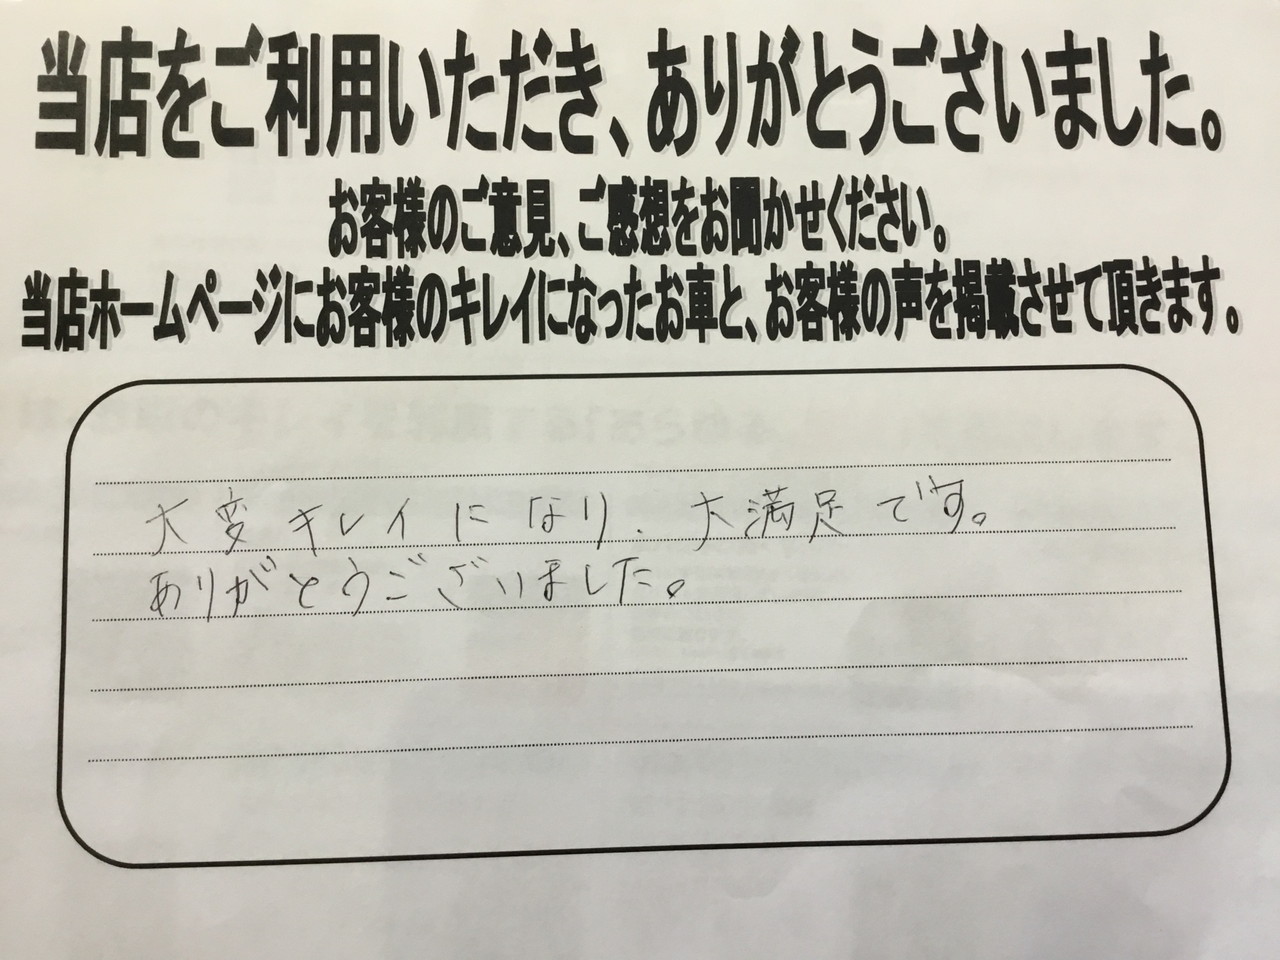 当店をご利用いただき、ありがとうございました。
お客様のご意見、ご感想をお聞かせください。
当店ホームページにお客様のキレイになったお車と、お客様の声を掲載させて頂きます。
大変キレイになり、大満足です。
ありがとうございました。